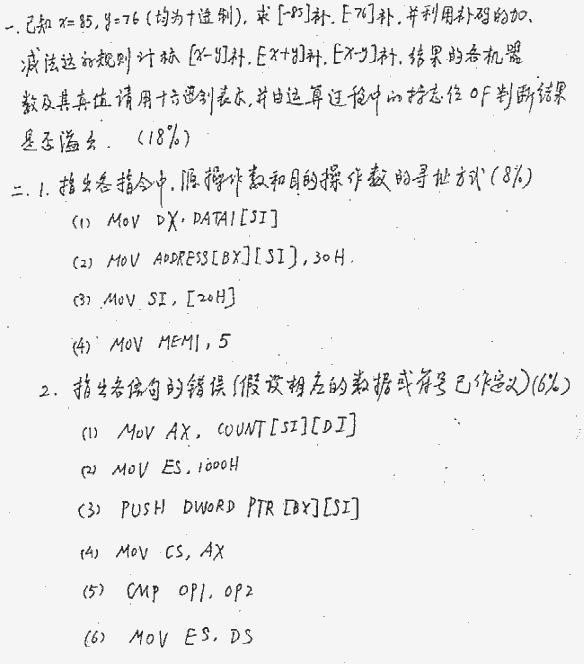 一. 已知 x=85, y=76 (均为十进制), 求 [-85]补, [-76]补, 并利用补码的加、
减法运算规则计标 [x-y]补, [-x+y]补, [-x-y]补, 结果的各机器
数及其真值请用十六进制表示, 并由运算过程中的标志位 OF 判断结果
是否溢出. (18%)
二. 1. 指出各指令中, 源操作数和目的操作数的寻址方式 (8%)
(1) MOV DX, DATA1[SI]
(2) MOV ADDRESS[BX][SI], 30H.
(3) MOV SI, [20H]
(4) MOV MEM1, 5
2. 指出各语句的错误 (假设相应的数据或符号已作定义) (6%)
(1) MOV AX, COUNT[SI][DI]
(2) MOV ES, 1000H
(3) PUSH DWORD PTR [BX][SI]
(4) MOV CS, AX
(5) CMP OP1, OP2
(6) MOV ES, DS